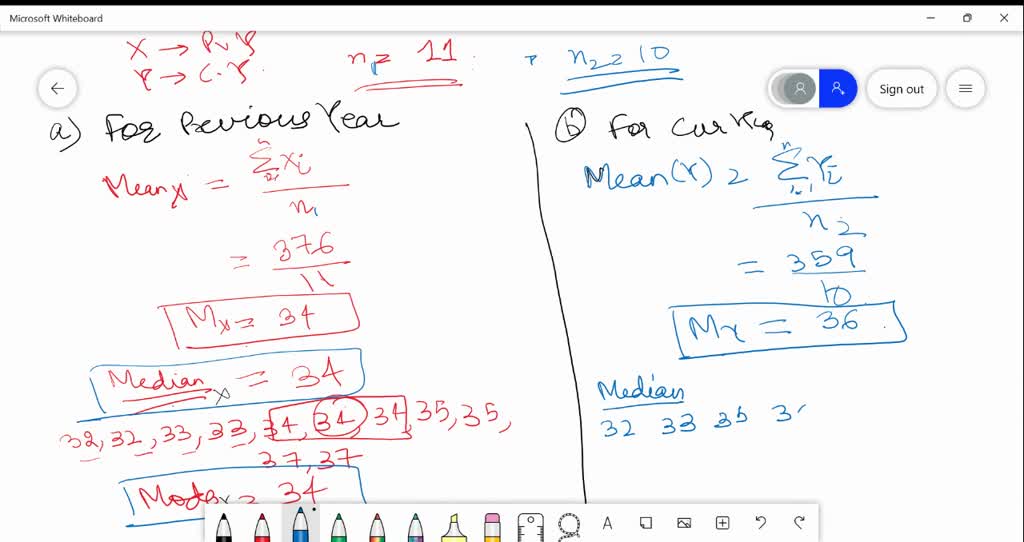 Microsoft Whiteboard
X → Pv Y
Y → C.Y.
n₁ = 11
n₂ = 10
Sign out
a) For Previous Year
Mean x = Σ xi / n₁
= 376 / 11
Mx = 34
Median x = 34
32, 32, 33, 33, 34, 34, 34, 35, 35,
37, 37
Mode x = 34
b) For Cur
Mean(Y) = Σ Yi / n₂
= 359 / 10
MY = 36
Median
32 33 35 3